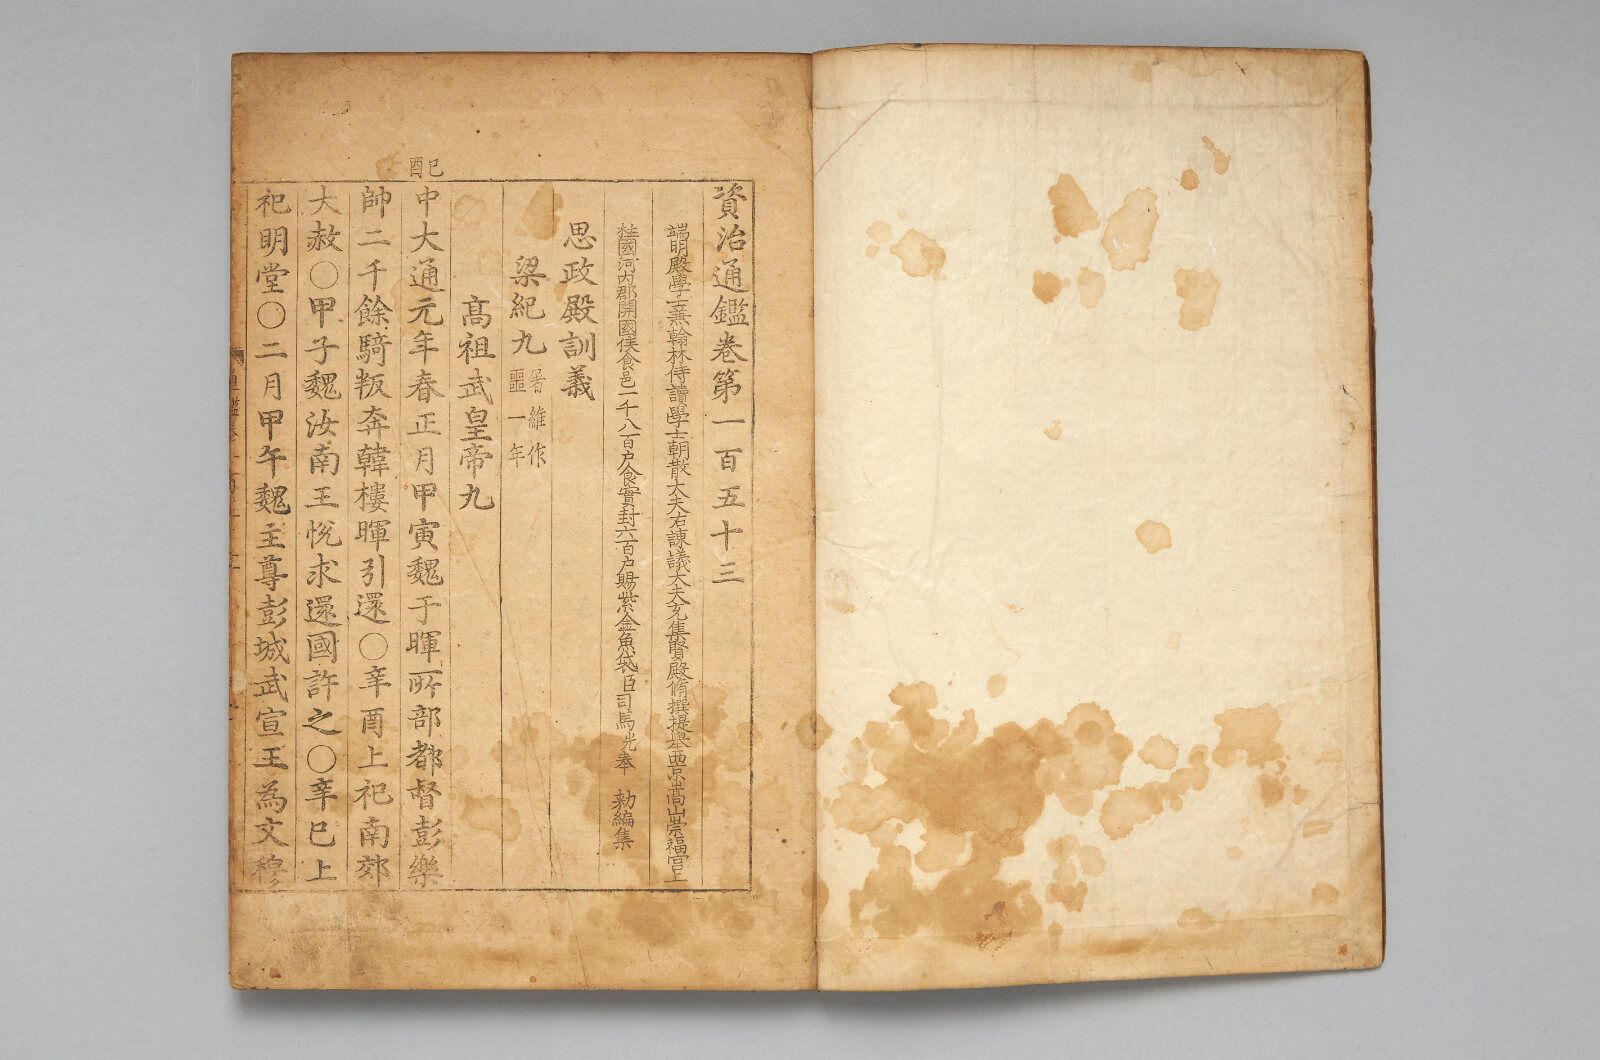 資治通鑑卷第一百五十三
端明殿學士兼翰林侍讀學士朝散大夫右諫議大夫充集賢殿脩撰提舉西京嵩山崇福宮上
柱國河內郡開國侯食邑一千八百户食實封六百户賜紫金魚袋臣司馬光奉 勑編集
思政殿訓義
梁紀九 屠維作
噩一年
高祖武皇帝九
己
酉
中大通元年春正月甲寅魏于暉所部都督彭樂
帥二千餘騎叛奔韓樓暉引還○辛酉上祀南郊
大赦○甲子魏汝南王悅求還國許之○辛巳上
祀明堂○二月甲午魏主尊彭城武宣王為文穆